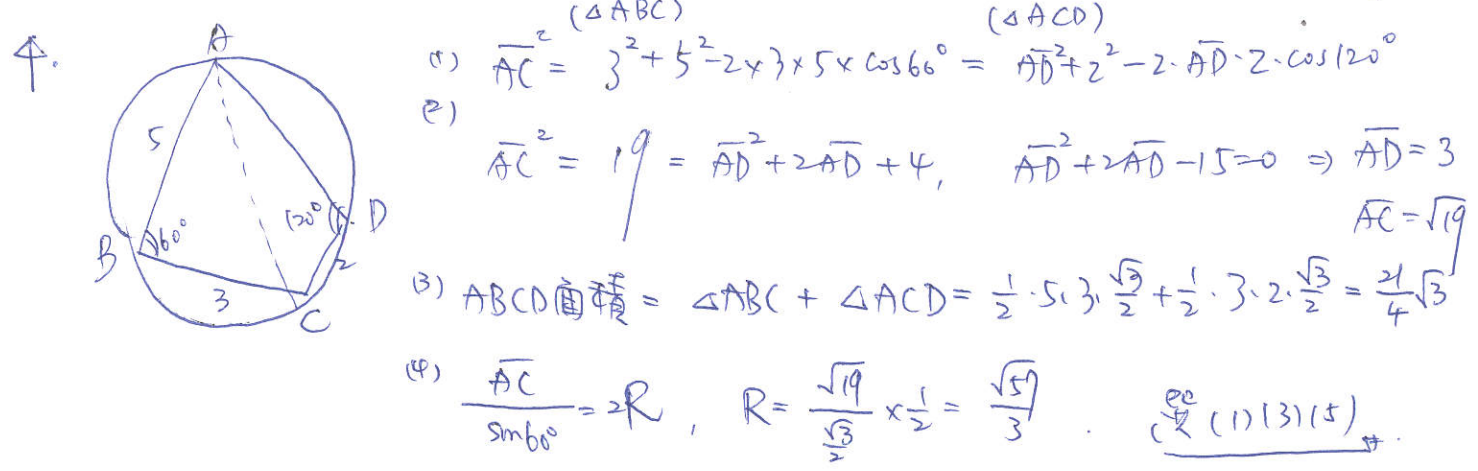 4.
A
5
60°
B
3
C
120°
D
2
(△ABC) (△ACD)
(1) AC̅² = 3²+5²-2×3×5×cos60° = AD̅²+2²-2·AD̅·2·cos120°
(2)
AC̅² = 19 = AD̅²+2AD̅+4, AD̅²+2AD̅-15=0 ⇒ AD̅=3
AC̅=√19
(3) ABCD面積 = △ABC + △ACD = 1/2·5·3·√3/2 + 1/2·3·2·√3/2 = 21/4√3
(4) AC̅/sin60° = 2R, R = √19/(√3/2) × 1/2 = √57/3. 選(1)(3)(5)